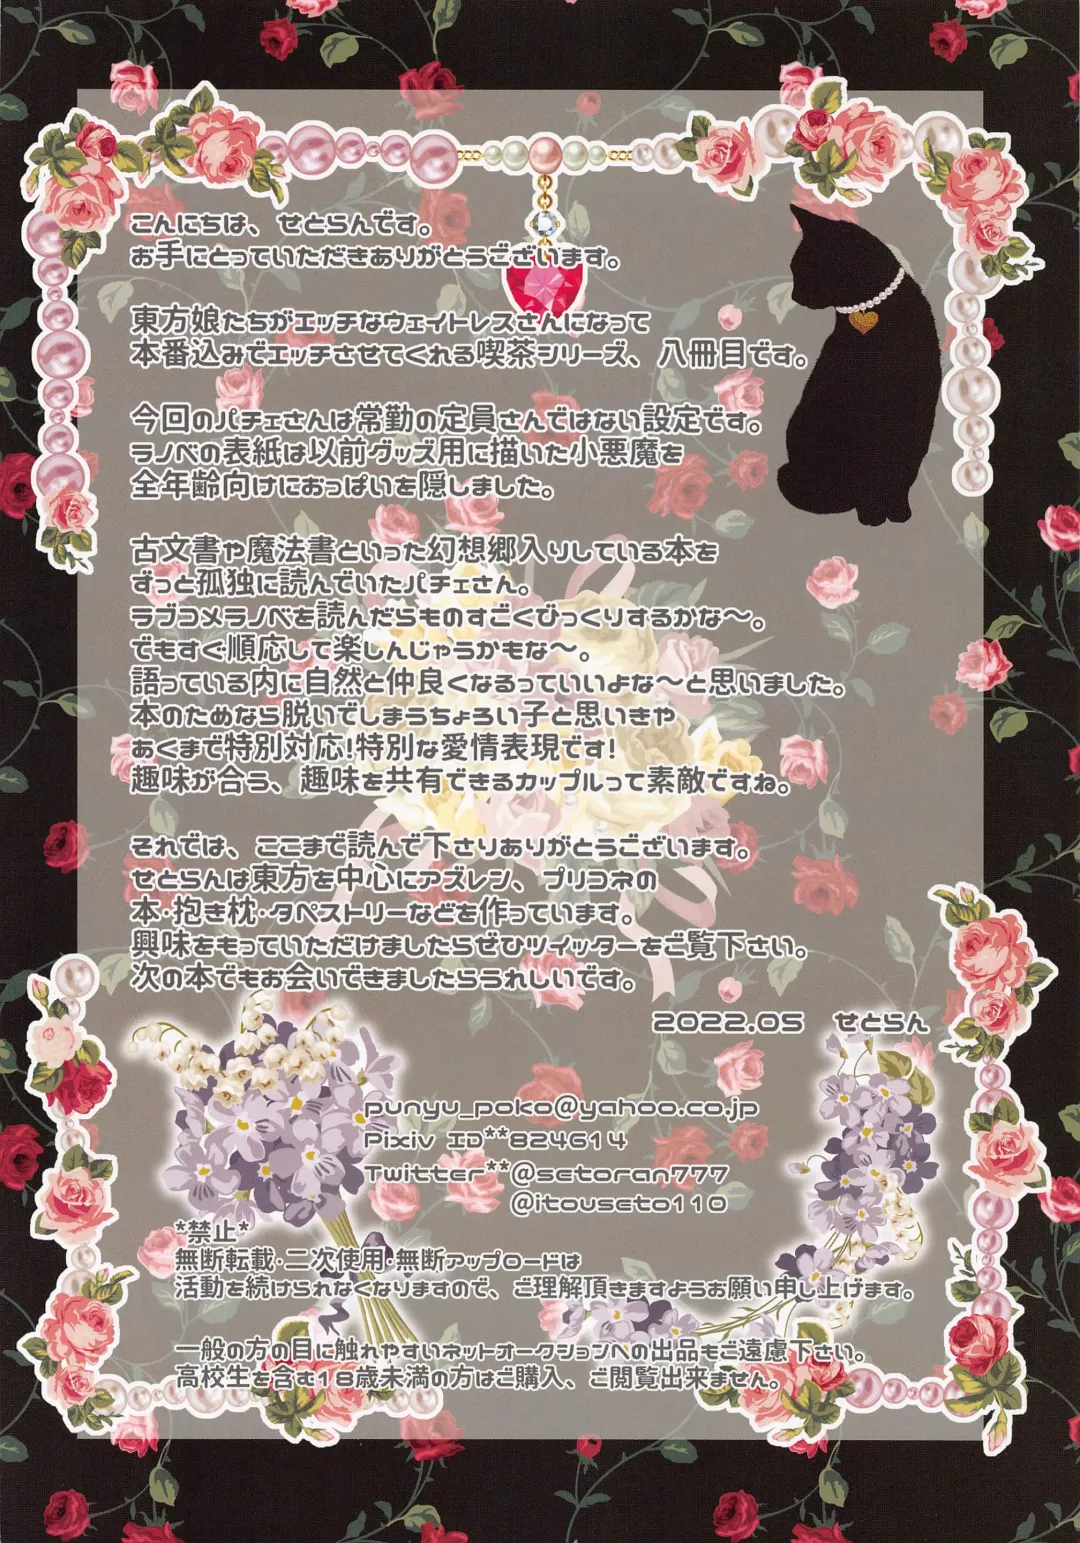 こんにちは、せとらんです。
お手にとっていただきありがとうございます。
東方娘たちがエッチなウェイトレスさんになって
本番込みでエッチさせてくれる喫茶シリーズ、八冊目です。
今回のパチェさんは常勤の定員さんではない設定です。
ラノベの表紙は以前グッズ用に描いた小悪魔を
全年齢向けにおっぱいを隠しました。
古文書や魔法書といった幻想郷入りしている本を
ずっと孤独に読んでいたパチェさん。
ラブコメラノベを読んだらものすごくびっくりするかな～。
でもすぐ順応して楽しんじゃうかもな～。
語っている内に自然と仲良くなるっていいよな～と思いました。
本のためなら脱いでしまうちょろい子と思いきや
あくまで特別対応!特別な愛情表現です!
趣味が合う、趣味を共有できるカップルって素敵ですね。
それでは、ここまで読んで下さりありがとうございます。
せとらんは東方を中心にアズレン、プリコネの
本・抱き枕・タペストリーなどを作っています。
興味をもっていただけましたらぜひツイッターをご覧下さい。
次の本でもお会いできましたらうれしいです。
2022.05 せとらん
punyu_poko@yahoo.co.jp
Pixiv ID**824614
Twitter**@setoran777
@itouseto110
*禁止*
無断転載・二次使用・無断アップロードは
活動を続けられなくなりますので、ご理解頂きますようお願い申し上げます。
一般の方の目に触れやすいネットオークションへの出品もご遠慮下さい。
高校生を含む18歳未満の方はご購入、ご閲覧出来ません。